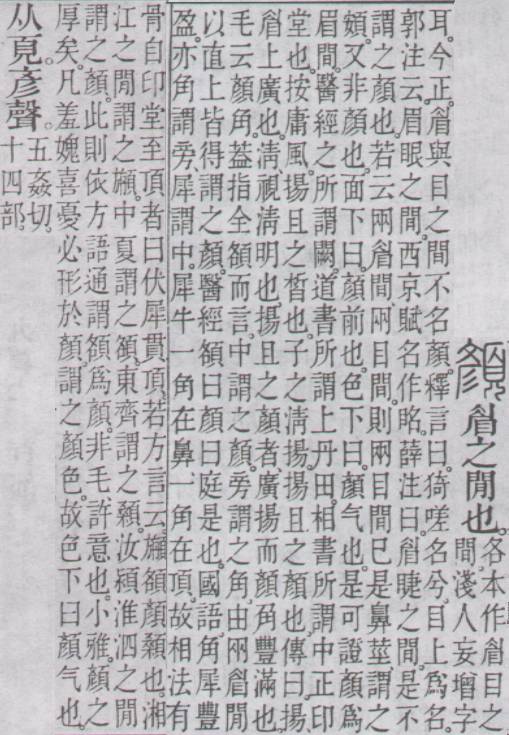 顏 睂之閒也。各本作睂目之
間。淺人妄增字
耳。今正。睂與目之間不名顏。釋言曰。猗嗟名兮。目上爲名。
郭注云。眉眼之間。西京賦名作略。薛注曰。睂睫之間。是不
謂之顏也。若云兩睂間兩目間。則兩目間已是鼻莖謂之
頞。又非顏也。面下曰。顏前也。色下曰。顏气也。是可證顏爲
眉間。醫經之所謂闕。道書所謂上丹田。相書所謂中正印
堂也。按庸風。揚且之晳也。子之淸揚。揚且之顏也。傳曰。揚、
睂上廣也。淸、視淸明也。揚且之顏者、廣揚而顏角豐滿也。
毛云顏角。葢指全額而言。中謂之顏。旁謂之角。由兩睂閒
以直上皆得謂之顏。醫經額曰顏曰庭是也。國語角犀豐
盈。亦角謂旁、犀謂中。犀牛一角在鼻一角在頂。故相法有
骨自印堂至頂者曰伏犀貫頂。若方言云。䫙額顏顙也。湘
江之閒謂之䫙。中夏謂之額。東齊謂之顙。汝潁淮泗之閒
謂之顏。此則依方語通謂額爲顏。非毛許意也。小雅。顏之
厚矣。凡羞媿喜憂必形於顏。謂之顏色。故色下曰顏气也。
从頁彥聲。五姦切。
十四部。